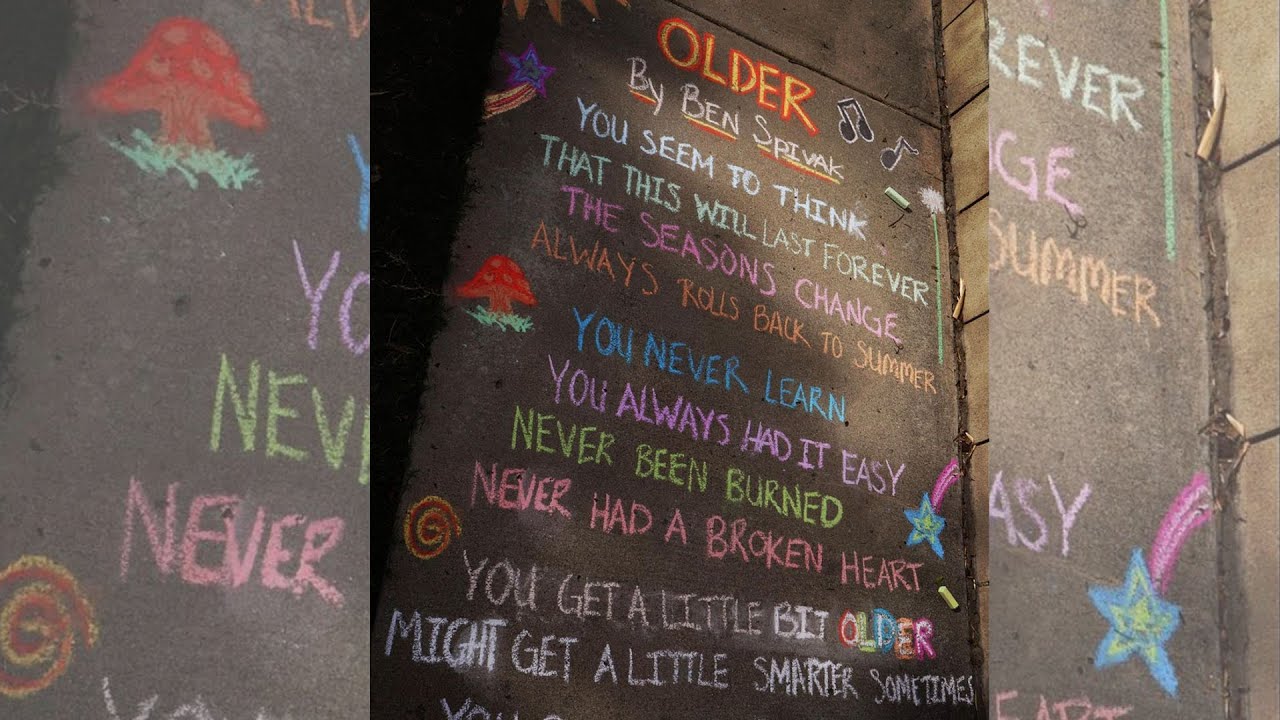 OLDER
By BEN SPIVAK
YOU SEEM TO THINK
THAT THIS WILL LAST FOREVER
THE SEASONS CHANGE
ALWAYS ROLLS BACK TO SUMMER
YOU NEVER LEARN
YOU ALWAYS HAD IT EASY
NEVER BEEN BURNED
NEVER HAD A BROKEN HEART
YOU GET A LITTLE BIT OLDER
MIGHT GET A LITTLE SMARTER SOMETIMES
YOU